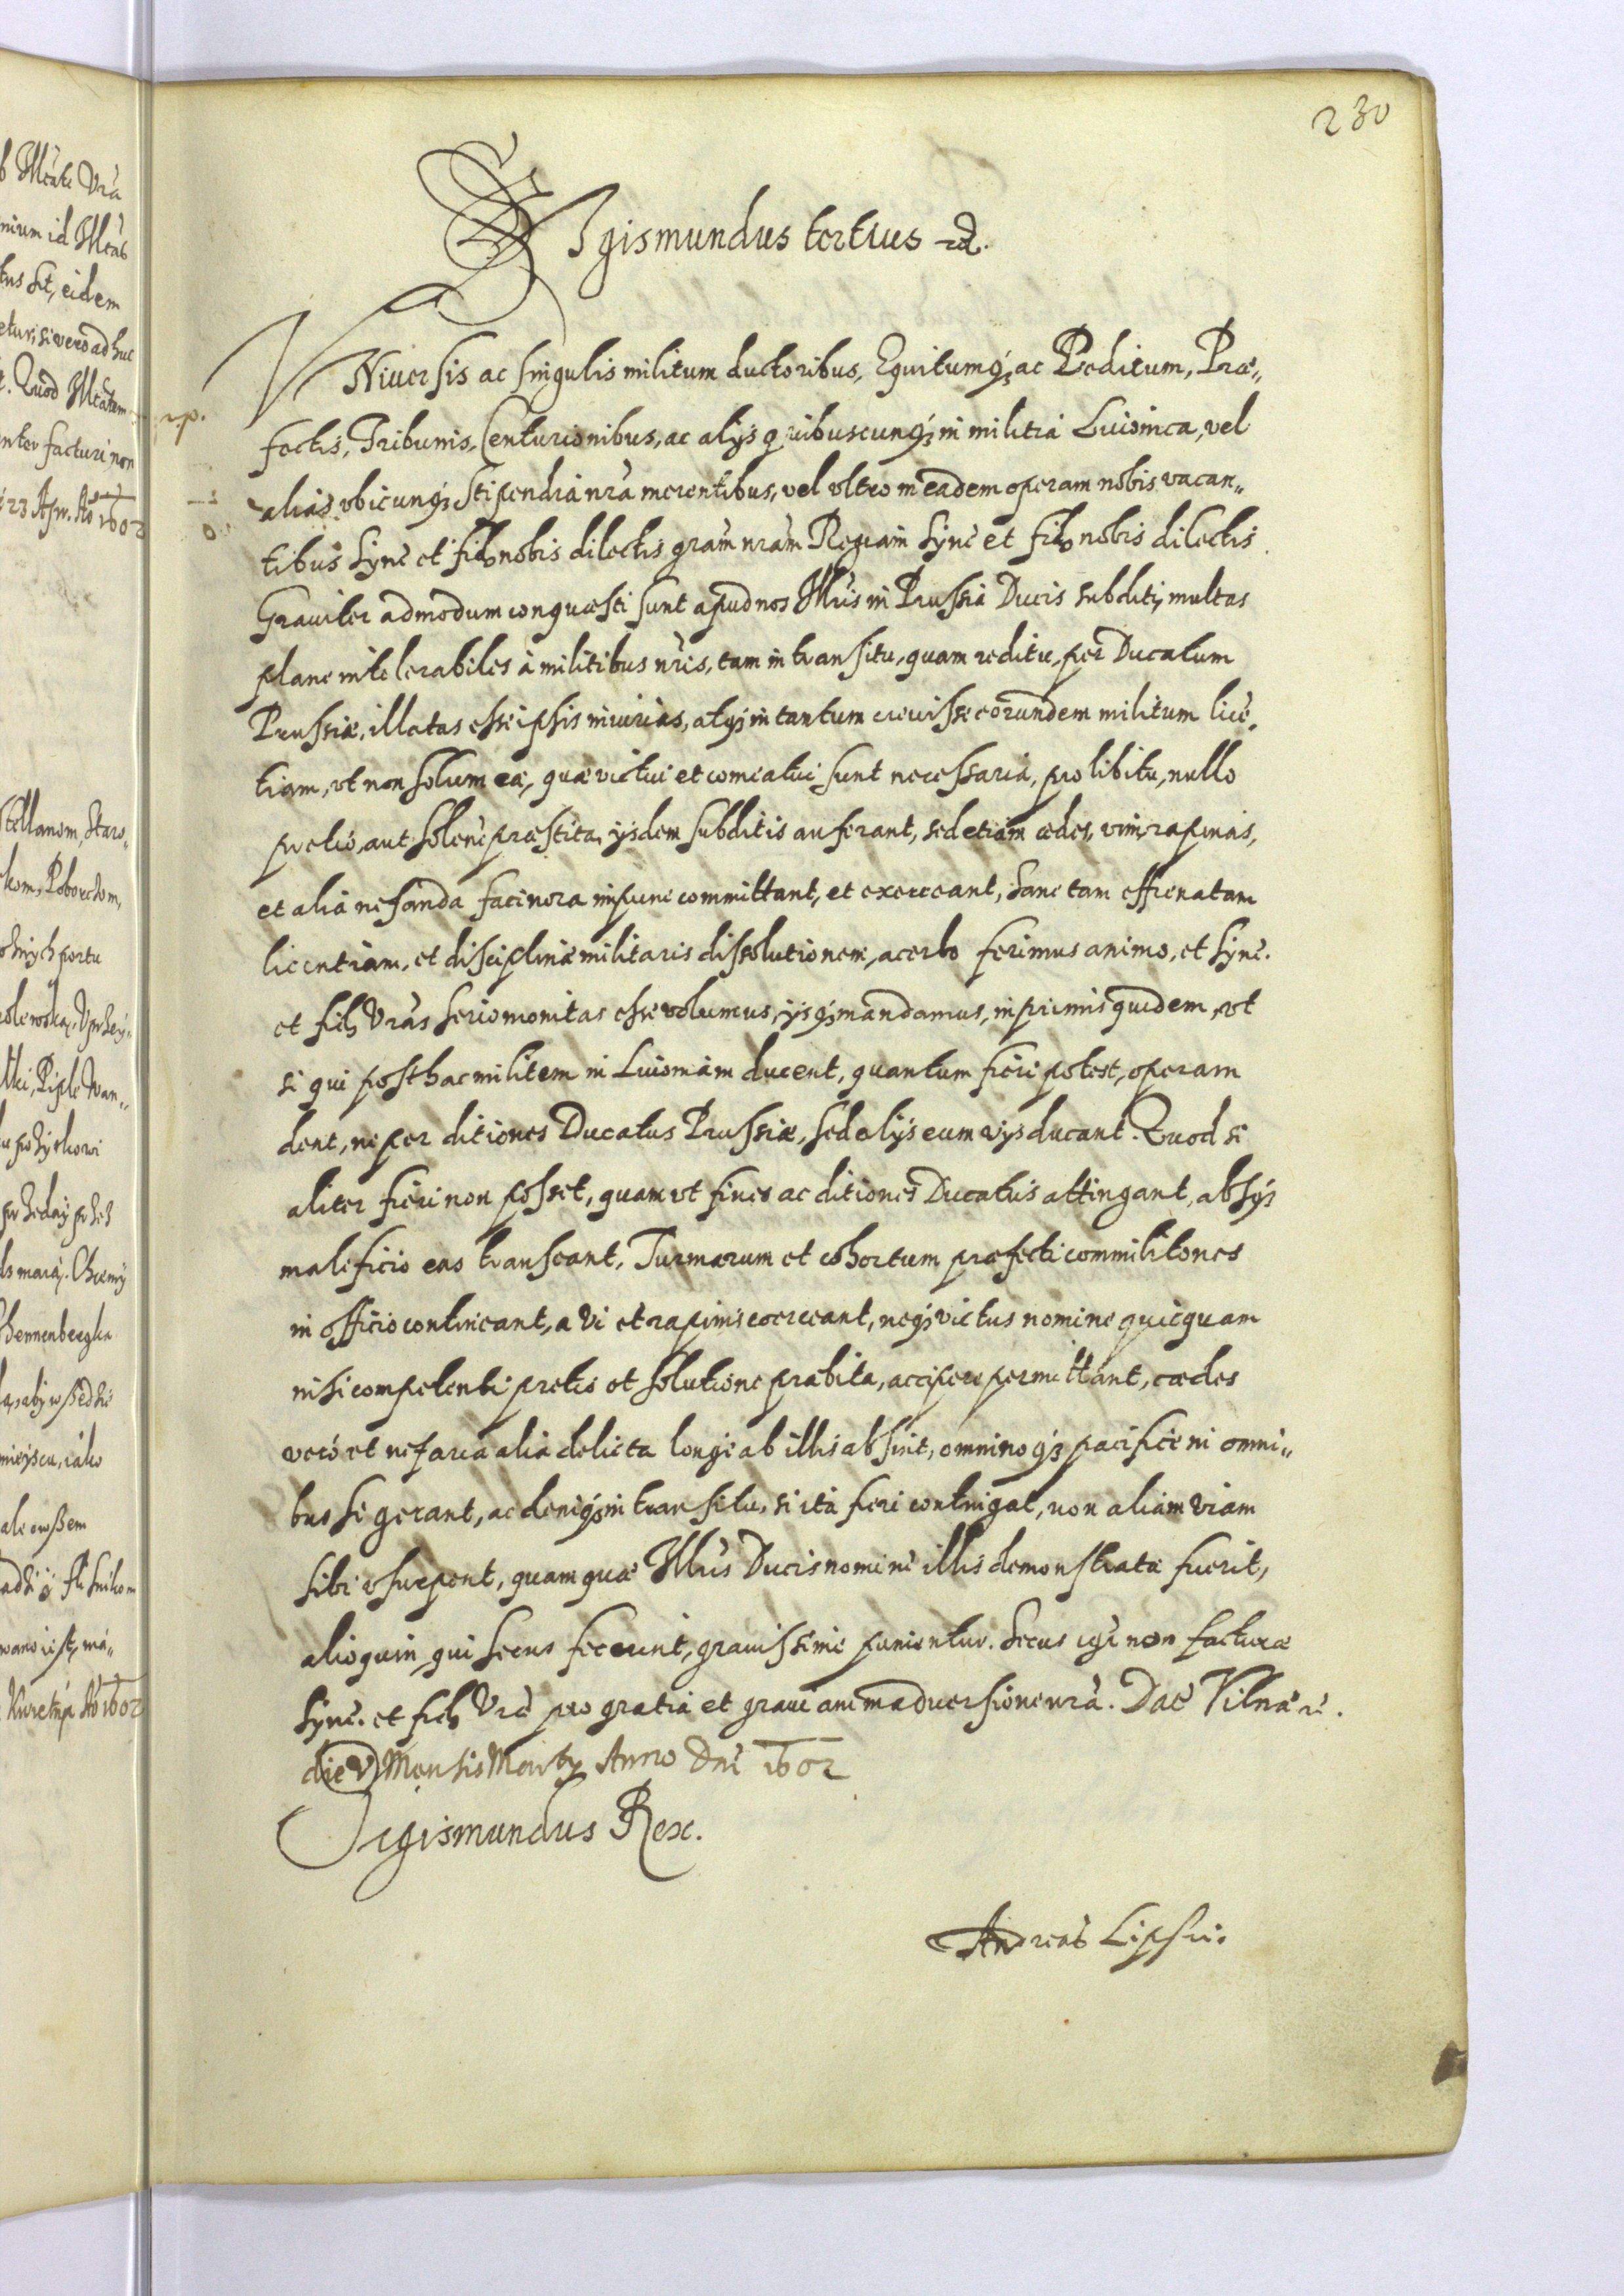 230
SIgismundus tertius etc.
VNiuersis ac singulis militum ductoribus, Equitumq3 ac Peditum, Præ„
fectis, Tribunis, Centurionibus, ac alijs quibuscunq3 in militia Liuonica, vel
alias vbicunq3 Stipendia nrã merentibus, vel vltro in eadem operam nobis vacan„
tibus Sync et fid nobis dilectis grãm nrãm Regiam Sync et fid nobis dilectis
Grauiter admodum conquæsti sunt apud nos Illris in Prussia Ducis subditi, multas
plane intolerabiles à militibus nris, tam in transitu, quam reditu, per Ducatum
Prussiæ, illatas esse ipsis iniurias, atq3 in tantum creuisse eorundem militum licẽ„
tiam, vt non solum ea, quæ victui et comeatui sunt necessaria, pro libitu, nullo
pretio, aut solonè præstita, ijsdem subditis auferant, sed etiam cædes, vim, rapinas,
et alia nefanda facinora impune committant, et exerceant, Sane tam effrenatam
licentiam, et disciplinæ militaris dissolutionem, acerbo ferimus animo, et Sync.
et fid Vras serio monitas esse volumus, ijsq3 mandamus, inprimis quidem, vt
si qui posthac militem in Liuoniam ducent, quantum fieri potest, operam
dent, ne per ditiones Ducatus Prussiæ, sed alijs eum vijs ducant. Quod si
aliter fieri non posset, quam vt fines ac ditiones Ducatus attingant, absq3
maleficio eas transeant, Turmarum et cohortum præfecti commilitones
in officio contineant, a vi et rapinis coerceant, neq3 victus nomine quicquam
nisi competenti pretio et solutione præbita, accipere permittant, cædes
verò et nefaria alia delicta longè ab illis absint, omninoq3 pacificè in omni„
bus se gerant, ac deniq3 in transitu, si ita fieri contingat, non aliam viam
sibi vsurpent, quam quæ Illris Ducis nomine illis demonstrata fuerit,
alioquin, qui secus fecerint, grauissime punientur. Secus igr non facturæ
Sync. et fid Vræ pro gratia et graui animaduersione nrã. Dat Vilnæ
die V Mensis Martij Anno Dni 1602
Sigismundus Rex.
Andreas Lipski.